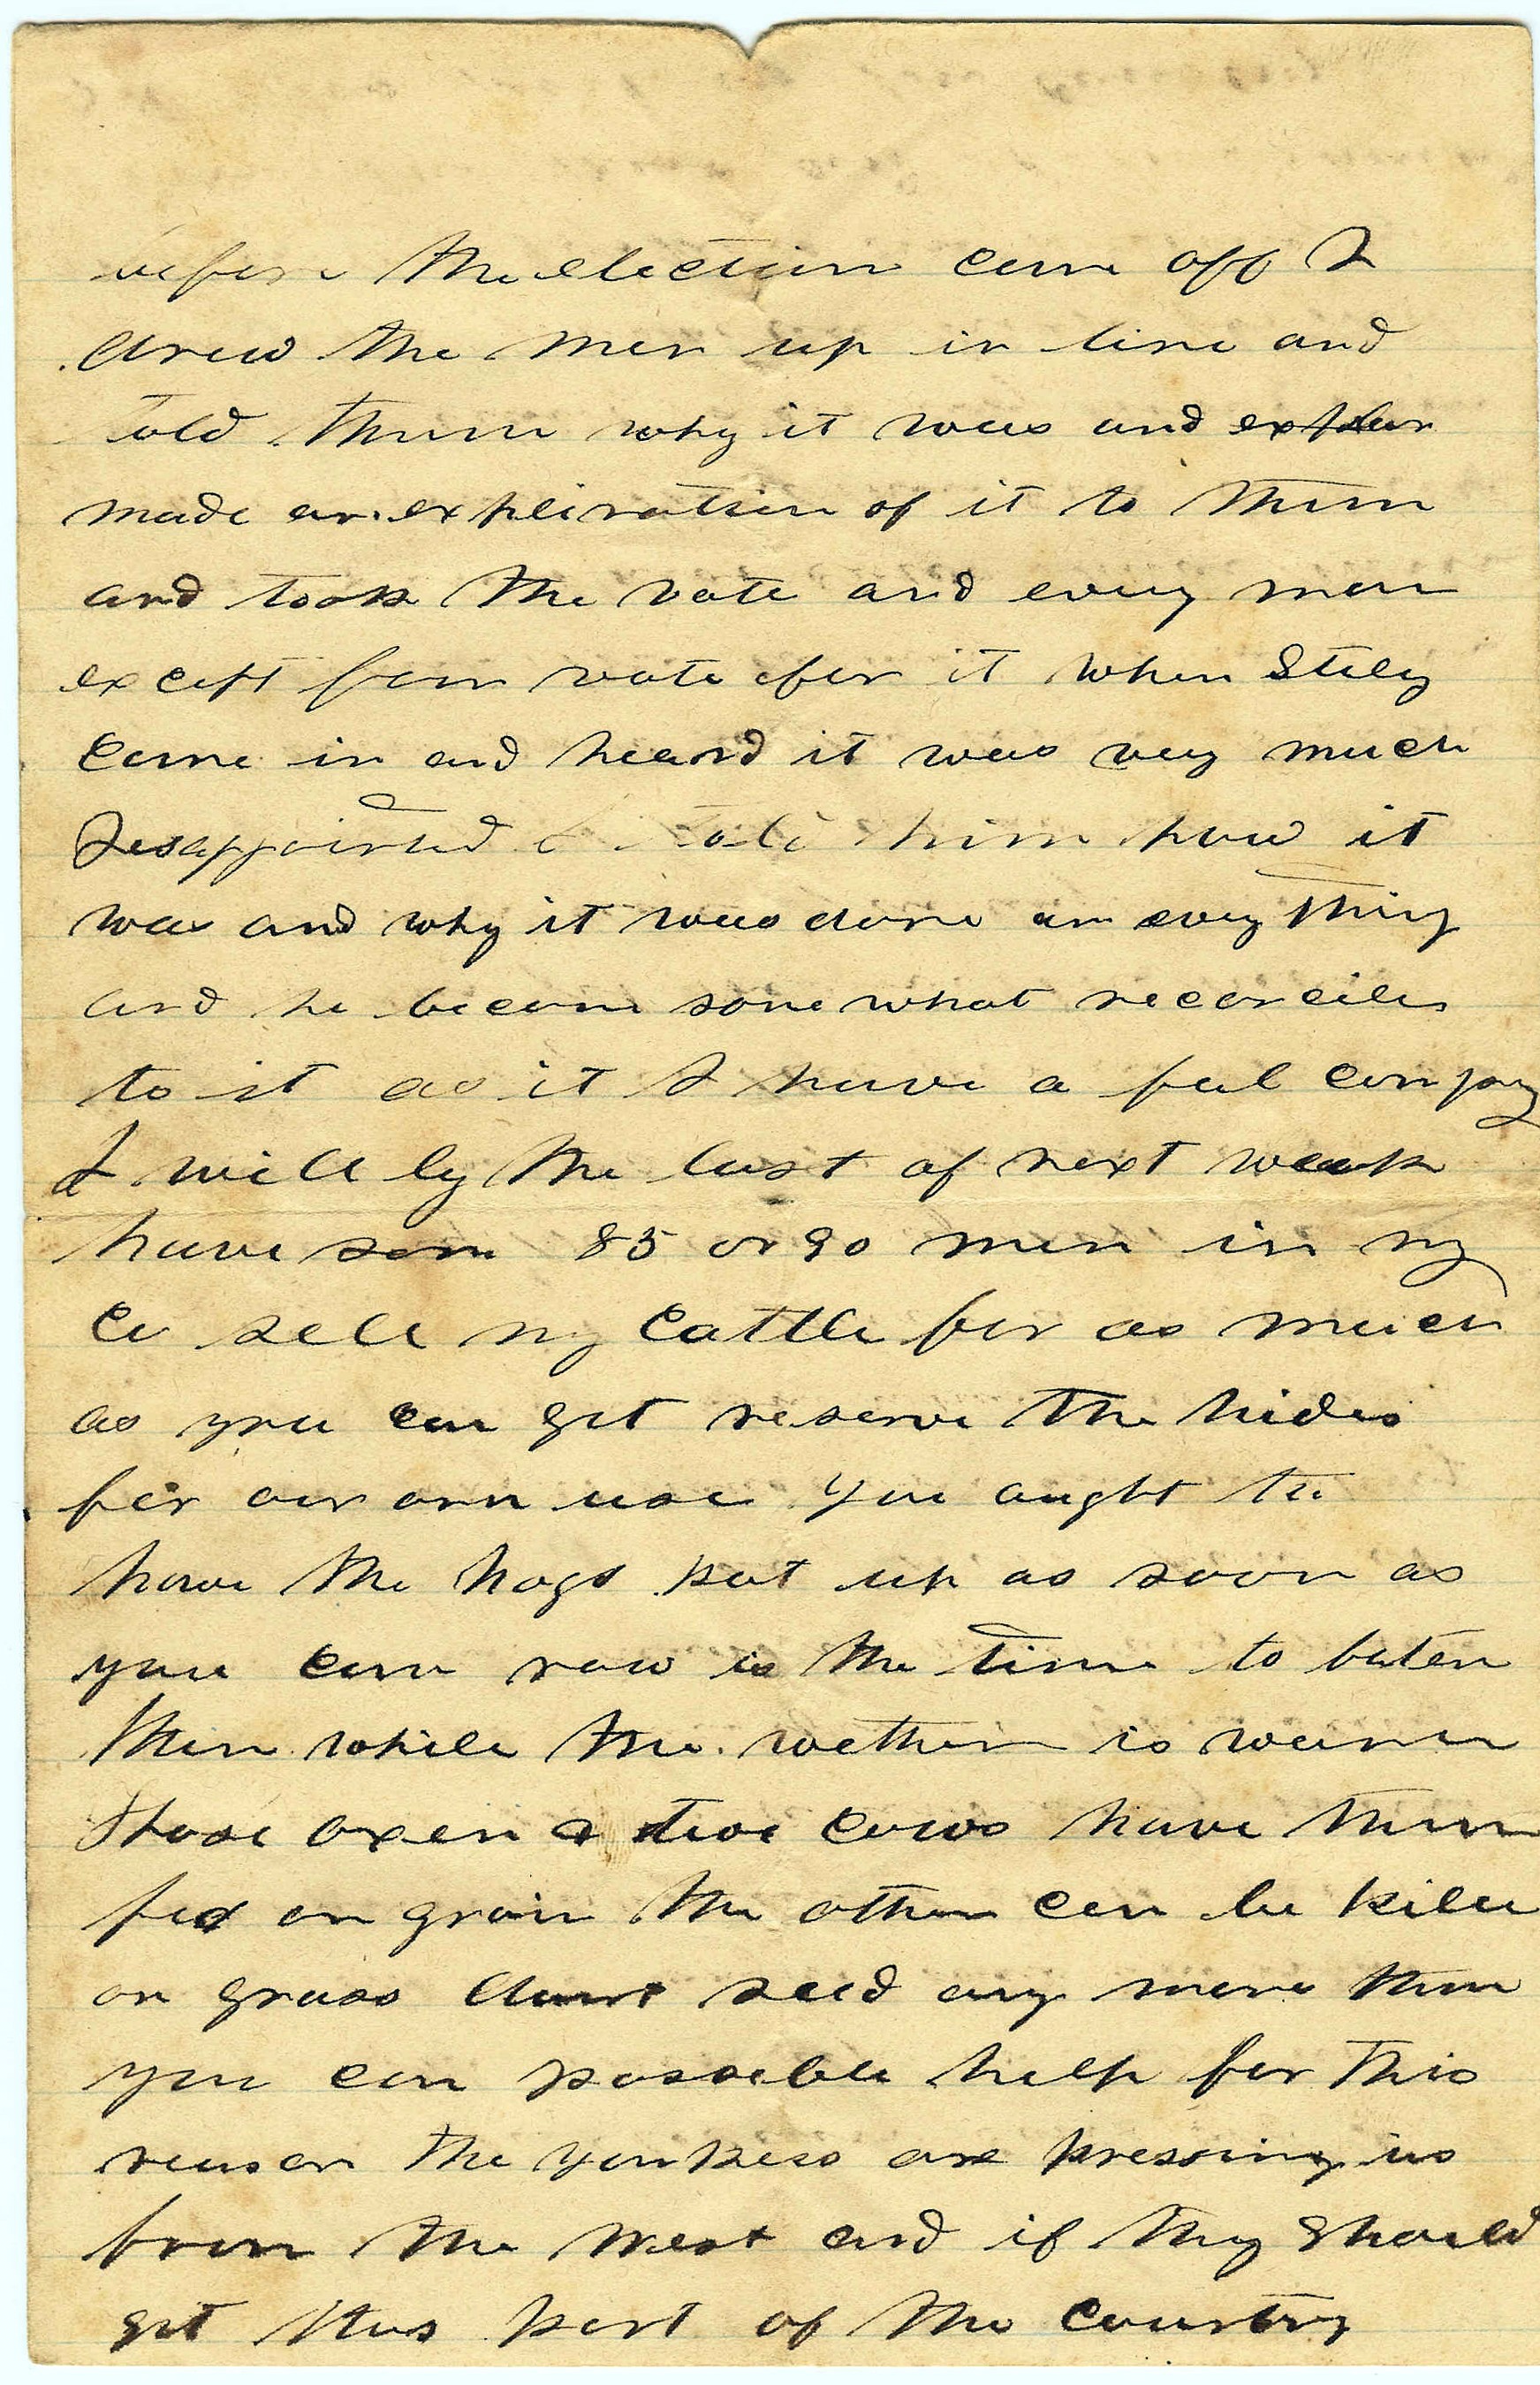 before the election came off I
drew the men up in line and
told them why it was and explan
made an explination of it to them
and took the vote and every man
except four vote for it when Stiley
came in and heard it was very much
Disappointed I told him how it
was and why it was done an evry thing
and he becom somewhat reconciles
to it as it I have a ful company
I will by the last of next weak
have som 85 or 90 men in my
Co sell my cattle for as much
as you can get reserve the hides
for our own use you aught to
have the hogs put up as soon as
you can now is the time to faten
them while the wether is warm
those oxen & two cows have them
fed on grain the other can be kiled
on grass dont seed any more than
you can possible help for this
reason the yankees are pressing us
from the West and if they should
get this part of the country